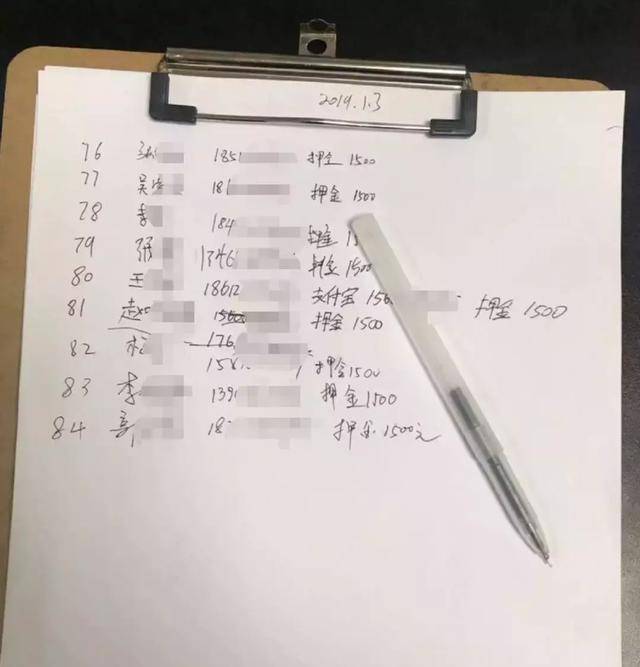 2019.1.3
76 张 1851 押金 1500
77 吴 181 押金 1500
78 李 184 押金 15
79 张 1346 押金 1500
80 王 18612 支付宝 156 押金 1500
81 赵 押金 1500
82 176
158 押金 1500
83 李 139 押金 1500
84 18 押金 1500元